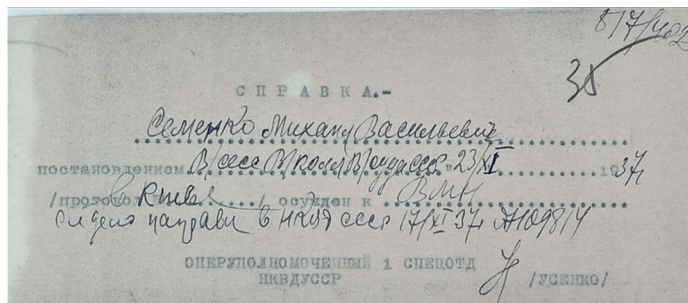 8/7/402
35
СПРАВКА.-
Семенко Михаил Васильевич
постановлением В/сесс В/колл В/суда ссср " 23/X 1937г
/протокол в Киеве / осужден к ВМН
След дело направл в НКВД СССР 17/XI 37г №109814
ОПЕРУПОЛНОМОЧЕННЫЙ 1 СПЕЦОТД
НКВДУССР
/УСЕНКО/